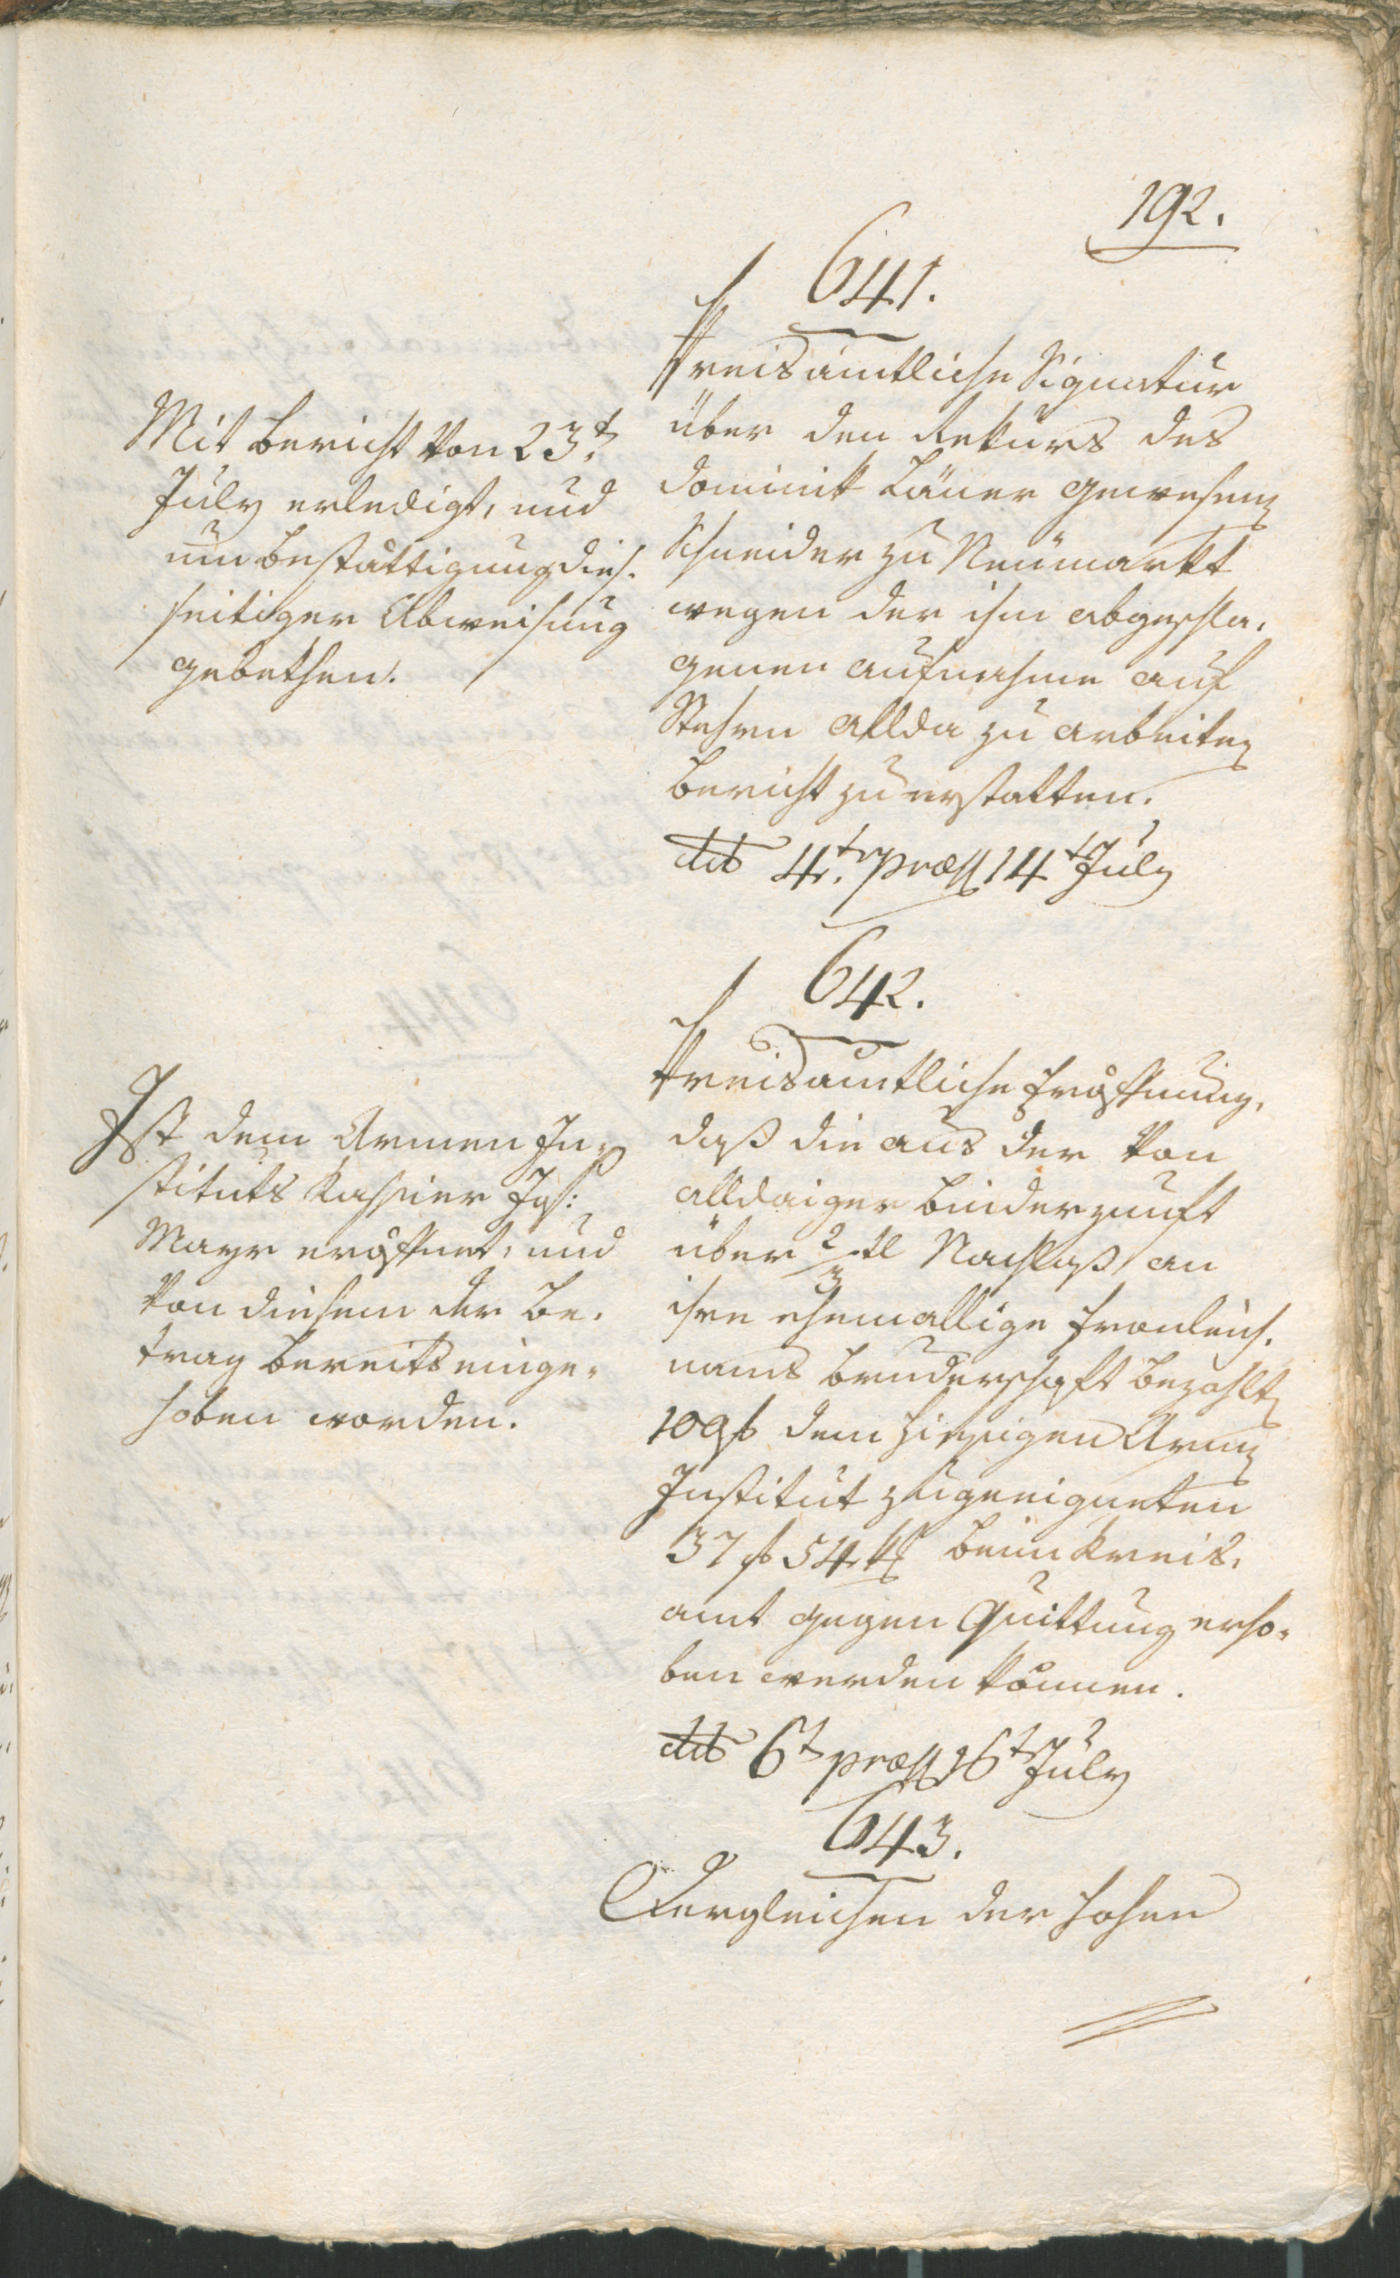 192.
641.
Kreisämtliche Signatur
über den Rekurs des
Dominik Läner gewesenen
Schneider zu Neumarkt
wegen der ihm abgeschla-
genen Aufnahme auf
Stehren allda zu arbeiten
Bericht zu erstatten.
ddto 4t. præs 14t July
Mit Bericht von 23t.
July erledigt, und
um Bestättigung dies-
seitiger Abweisung
gebethen.
642.
Kreisamtliche Eröffnung,
daß die aus der von
alldaiger Binderzunft
über 2/3tl Nachlaß an
ihre ehemallige Fronleich-
nams Bruderschaft bezahlten
109 f dem hiesigen Armen
Institut zugeeigneten
37 f 54 kr beim Kreis-
amt gegen Quittung erho-
ben werden können.
ddto 6t præs 16t July
Ist dem Armen In-
stituts Kassier Jos:
Mayr eröffnet, und
von diesem der Be-
trag bereits einge-
hoben worden.
643.
Dergleichen der hohen